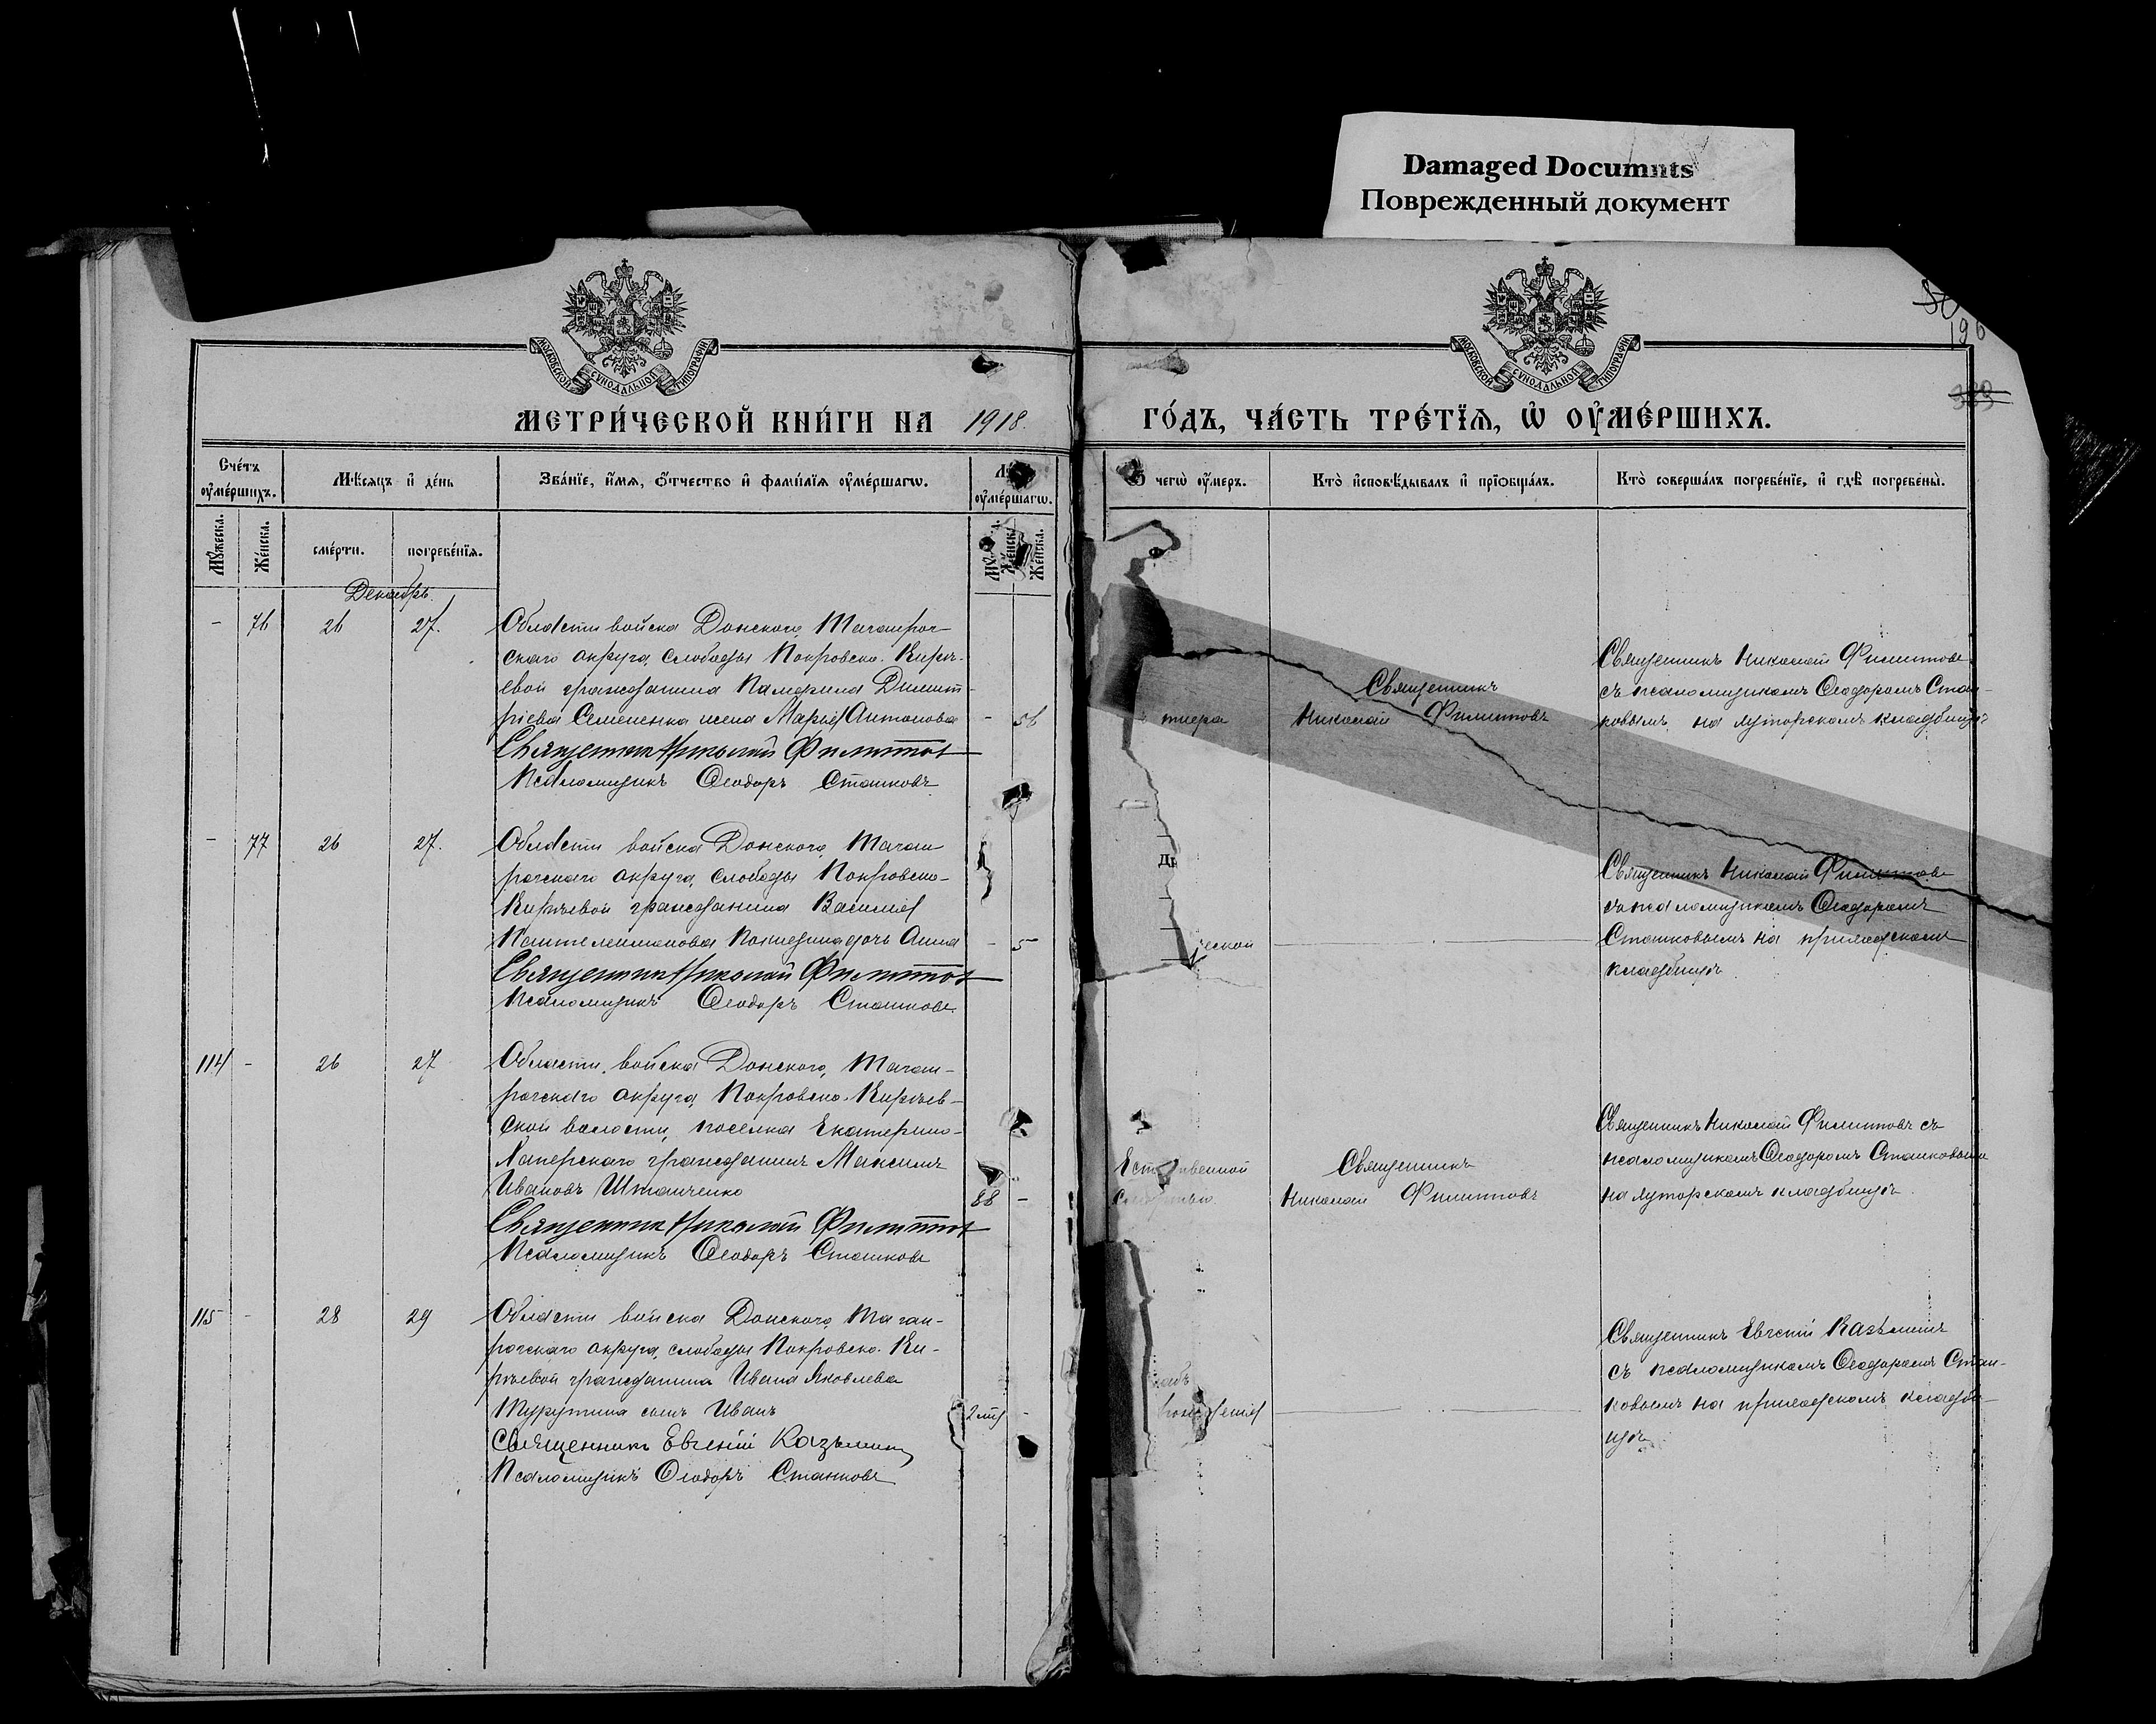 Damaged Documnts
Поврежденный документ
МОСКОВСКОЙ СѴНОДАЛЬНОЙ ТИПОГРАФІИ
МОСКОВСКОЙ СѴНОДАЛЬНОЙ ТИПОГРАФІИ
196
339
МЕТРИ́ЧЕСКОЙ КНИ́ГИ НА 1918. ГО́ДЪ, ЧА́СТЬ ТРЕ́ТЇѦ, Ѡ҆ ОУ҆МЕ́РШИХЪ.
Сче́тъ оу҆ме́ршихъ.
Мѣ́сяцъ и҆ де́нь
Зва́нїе, и҆́мѧ, ѻ҆́тчество и҆ фами́лїѧ оу҆ме́ршагѡ.
оу҆ме́ршагѡ.
чегѡ̀ оу҆́меръ.
Кто̀ и҆сповѣ́дывалъ и҆ прїѡбща́лъ.
Кто̀ соверша́лъ погребе́нїе, и҆ гдѣ̀ погребены̀.
Мꙋ́жеска.
Же́нска.
сме́рти.
погребе́нїѧ.
Же́нска.
Декабрь.
- 76 26 27.
Области войска Донского, Таганрог-
скаго округа, слободы Покровско-Кирѣ-
евой гражданина Димит-
ріева Семененка жена Марья Антонова - 56
Священник Николай Филиппов
Псаломщикъ Ѳеодоръ Станковъ
тифа
Священникъ
Николай Филипповъ
Священникъ Николай Филипповъ
съ псаломщикомъ Ѳеодоромъ Стан-
ковымъ, на хуторскомъ кладбищѣ
- 77 26 27.
Области войска Донского, Таган
рогскаго округа, слободы Покровско-
Кирѣевой гражданина Василія
Пантелеимонова дочь Анна - 5
Священник Николай Филиппов
Псаломщикъ Ѳеодоръ Станковъ
ческой
Священникъ Николай Филипповъ
съ псаломщикомъ Ѳеодоромъ
Станковымъ на приходскомъ
кладбищѣ
114 - 26 27
Области войска Донского, Таган-
рогскаго округа, Покровско-Кирѣев-
ской волости, поселка Екатерино-
Хаперскаго гражданинъ Максимъ
Ивановъ Штанченко 88 -
Священник Николай Филиппов
Псаломщикъ Ѳеодоръ Станковъ
Священникъ
Николай Филипповъ
Священникъ Николай Филипповъ съ
псаломщикомъ Ѳеодоромъ Станковымъ
на хуторскомъ кладбищѣ
115 - 28 29
Области войска Донского, Таган-
рогскаго округа, слободы Покровско-Ки-
рѣевой гражданина Ивана Яковлева
сынъ Иванъ 2 -
Священникъ Евгеній Казьминъ
Псаломщикъ Ѳеодоръ Станковъ
Священникъ Евгеній Казьминъ
съ псаломщикомъ Ѳеодоромъ Стан-
ковымъ на приходскомъ кладби-
щѣ